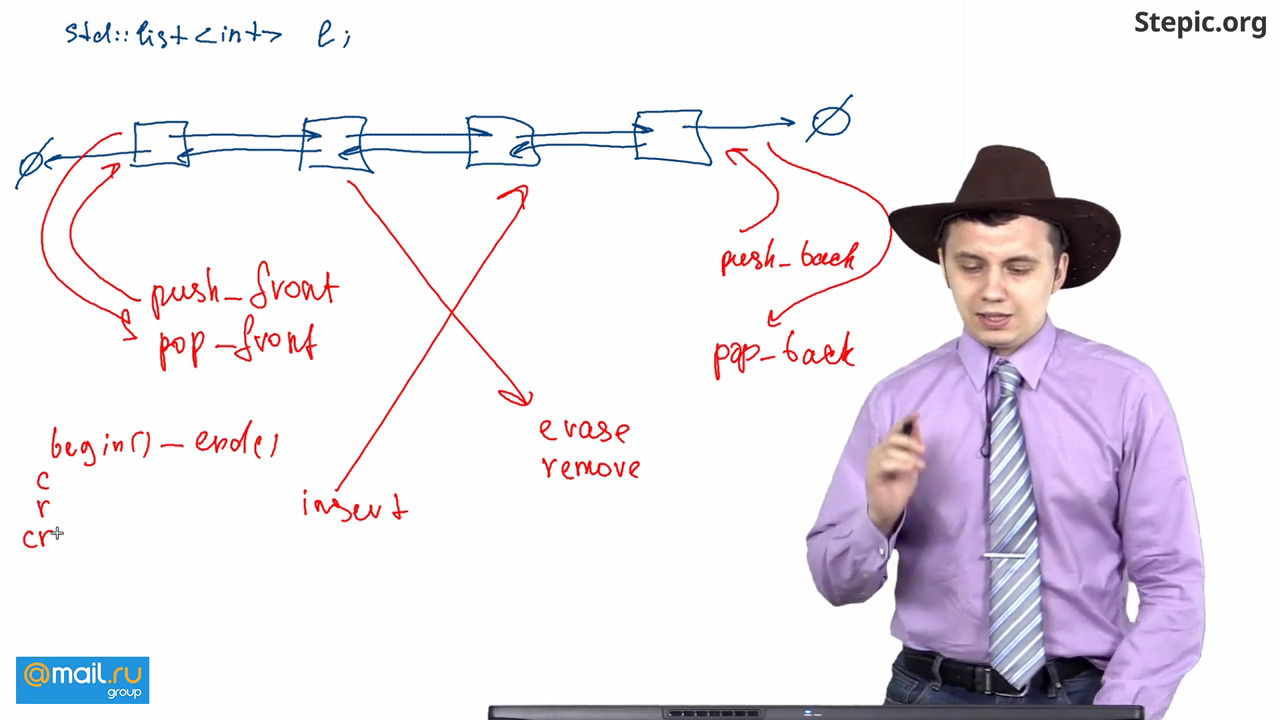 std::list<int> l;
Stepic.org
∅
∅
push_front
pop_front
push_back
pop_back
begin() – end()
c
r
cr
insert
erase
remove
@mail.ru
group